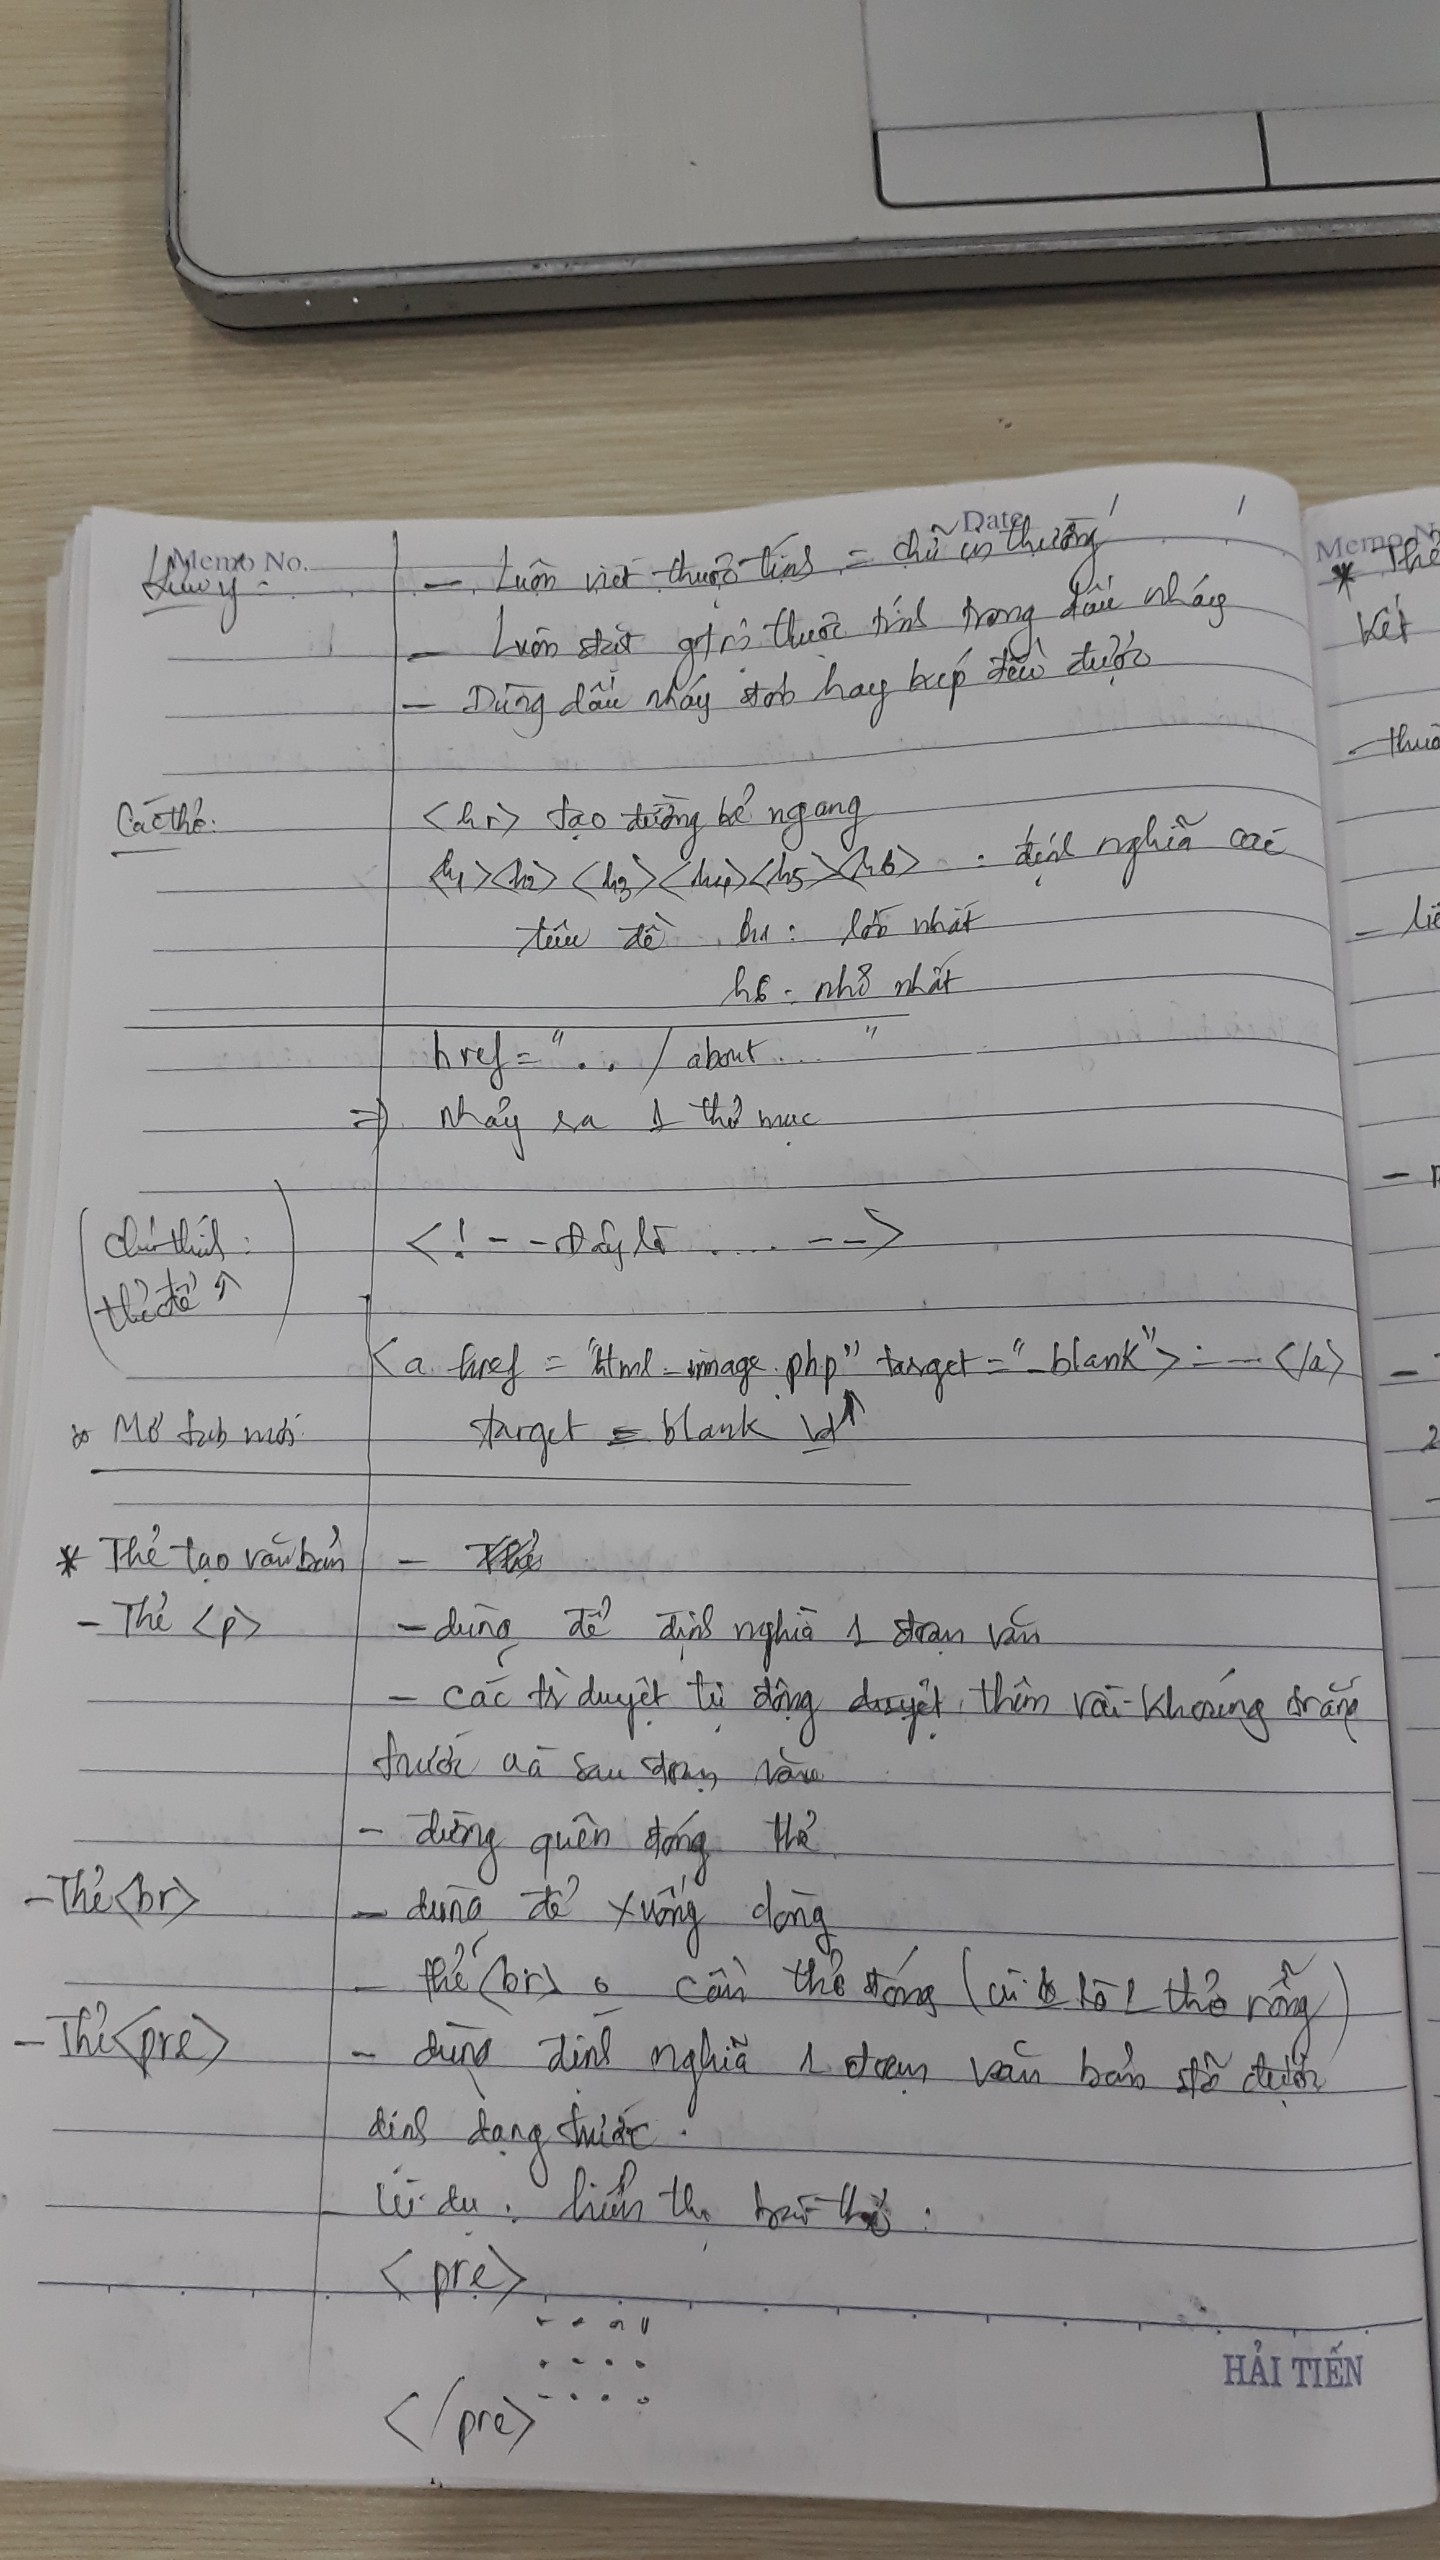 Memo No.
Date / /
Lưu ý:
- Luôn viết thuộc tính = chữ in thường
- Luôn đặt gtrị thuộc tính trong dấu nháy
- Dùng dấu nháy đơn hay kép đều được
Các thẻ:
<hr> tạo đường kẻ ngang
<h1><h2><h3><h4><h5><h6> : định nghĩa các
tiêu đề h1: lớn nhất
h6: nhỏ nhất
href = "../about...."
=> Nhảy ra 1 thư mục
(Chú thích:
thẻ để ↑)
<!-- Đây là .... -->
<a href = "html-image.php" target="_blank">....</a>
Mở tab mới
target = blank
* Thẻ tạo văn bản
- Thẻ <p>
- dùng để định nghĩa 1 đoạn văn
- Các tr duyệt tự động duyệt thêm vài khoảng trắng
trước và sau đoạn văn
- đừng quên đóng thẻ
- Thẻ <br>
- dùng để xuống dòng
- thẻ <br> o cần thẻ đóng ( là 1 thẻ rỗng)
- Thẻ <pre>
- dùng định nghĩa 1 đoạn văn bản đã được
định dạng trước.
Ví dụ: hiển thị bài thơ:
<pre>
....
....
....
</pre>
HẢI TIẾN
Memo N
* Thẻ
Kết